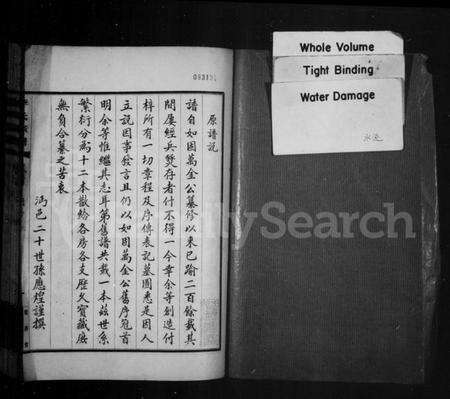 原譜説
譜自如因萬金公纂修以來已踰二百餘載其
間屢經兵燹存者什不得一今幸余等創造付
梓所有一切章程及序傳表記墓圖悉是因人
立説因事發言且仍以如因萬金公舊序冠首
明余等惟繼其志耳第舊譜共裁一本茲世系
繁衍分為十二本散給各房各支歷久寶藏庶
無負合纂之苦衷
馮邑二十世孫應煌謹撰
Whole Volume
Tight Binding
Water Damage
水浸
FamilySearch